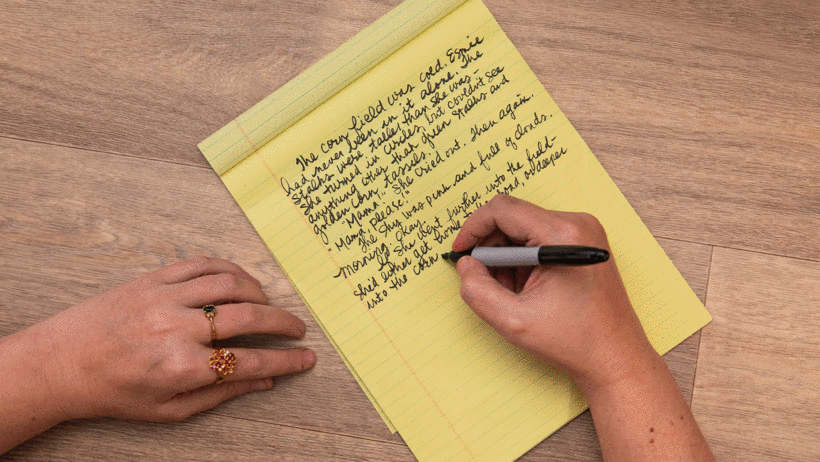 The corn field was cold. Esmie
had never been in it alone. The
stalks were taller than she was –
she turned in circles, but couldn't see
anything other that green stalks and
golden corn tassels.
"Mama," she cried out. Then again.
"Mama, please."
The sky was pink and full of clouds.
Morning. Okay.
If she went further into the field –
she'd either get home to or deeper
into the corn